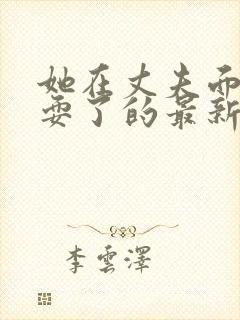 她在丈夫而
耍了的最新
李雲澤